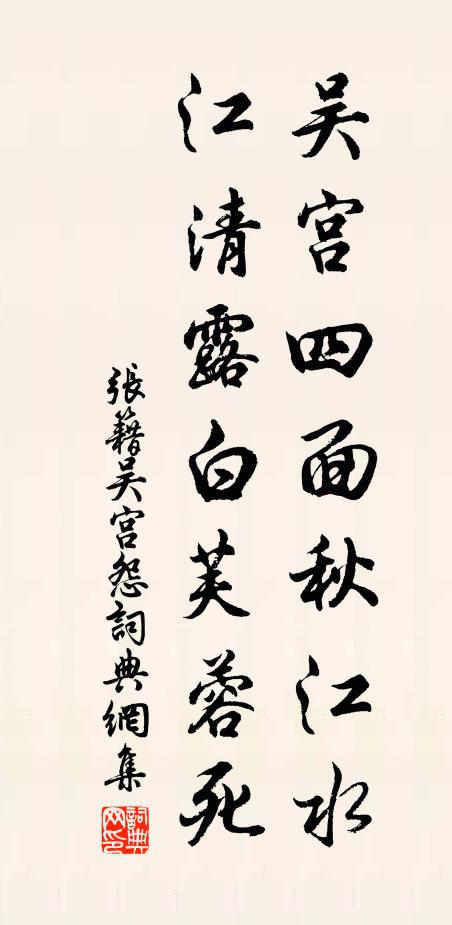 吴宫四面秋江水
江清露白芙蓉死
張籍吴宫怨詞典網集
詞典网印